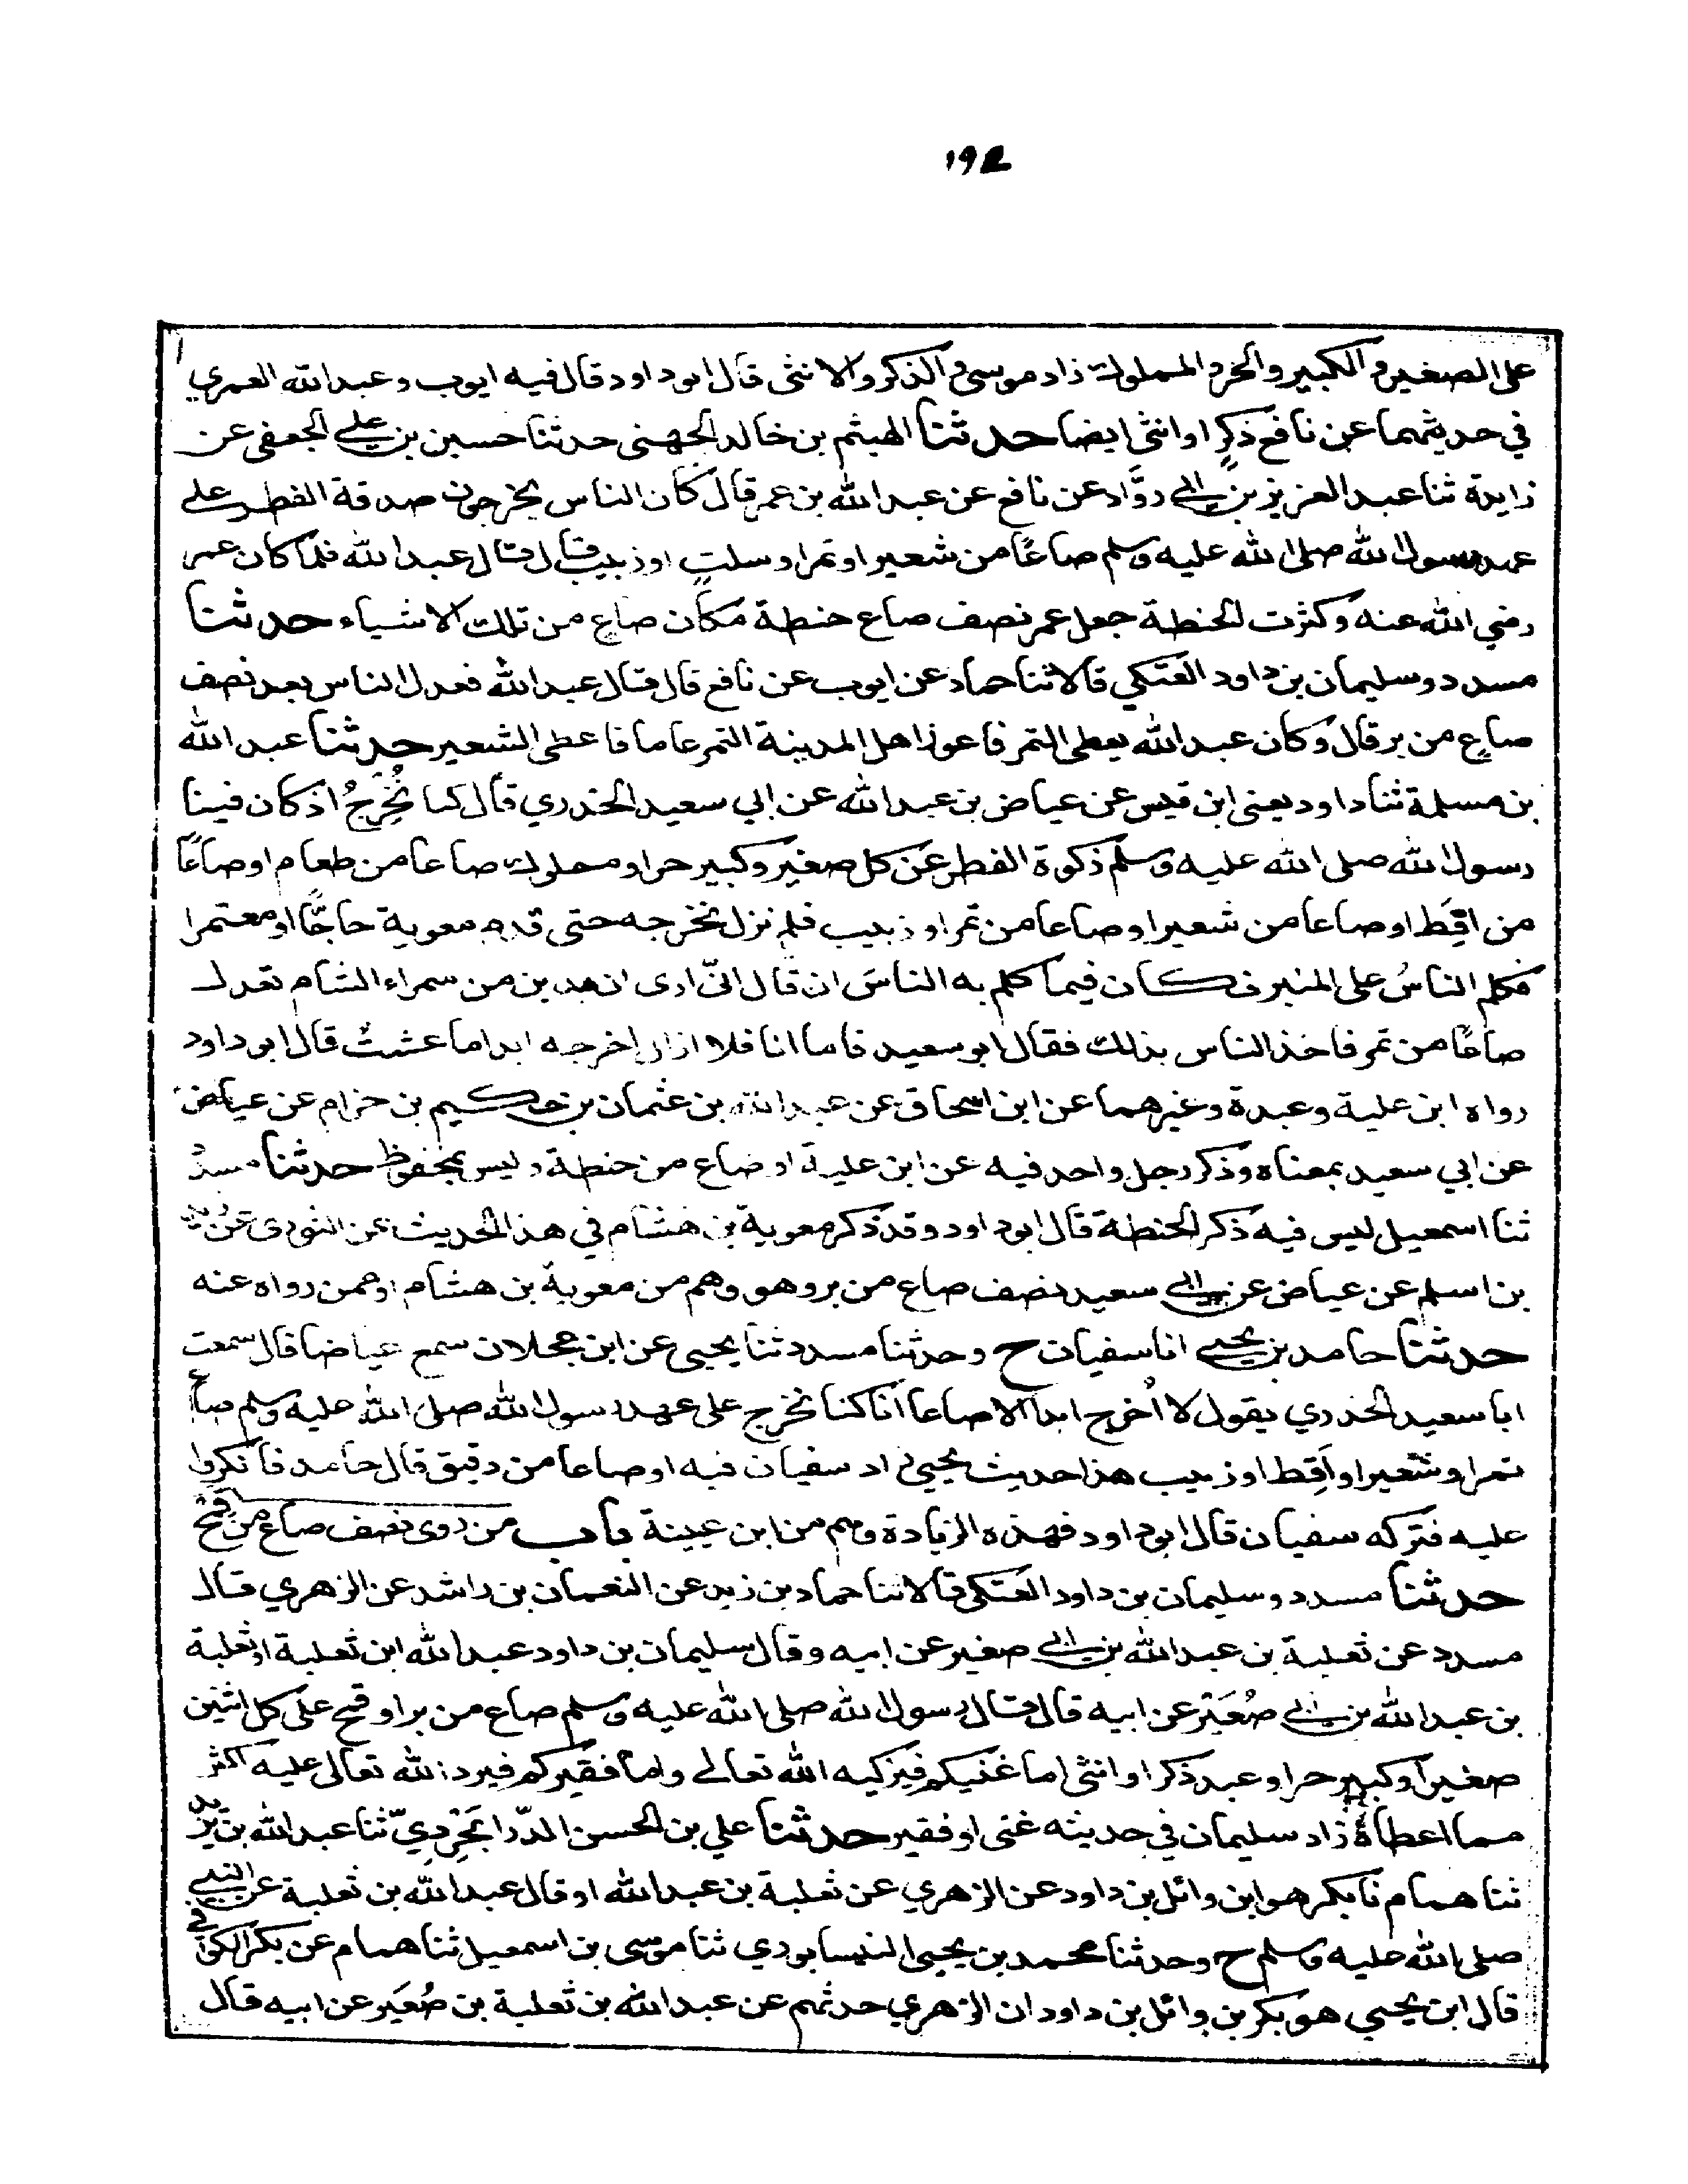 192
على الصغير والكبير والحر والمملوك زاد موسى والذكر والانثى قال ابو داود قال فيه ايوب وعبد الله العمري
في حديثهما عن نافع ذكرٍ او انثى ايضا حدثنا الهيثم بن خالد الجهنى حدثنا حسين بن علي الجعفى عن
زايدة ثنا عبد العزيز بن ابي روَّاد عن نافع عن عبد الله بن عمر قال كان الناس يخرجون صدقة الفطر على
عهد رسول الله صلى الله عليه وسلم صاعًا من شعير او تمر او سلتٍ او زبيب قال قال عبد الله فلما كان عمر
رضي الله عنه وكثرت الحنطة جعل عمر نصف صاع حنطة مكان صاع من تلك الاشياء حدثنا
مسدد وسليمان بن داود العتكي قالا ثنا حماد عن ايوب عن نافع قال قال عبد الله فعدل الناس بعد نصف
صاعٍ من بر قال وكان عبد الله يعطى التمر فاعوز اهل المدينة التمر عاما فاعطى الشعير حدثنا عبد الله
بن مسلمة ثنا داود يعنى ابن قيس عن عياض بن عبد الله عن ابي سعيد الخدري قال كنا نُخْرِجُ اذ كان فينا
رسول الله صلى الله عليه وسلم زكوة الفطر عن كل صغير وكبير حر او مملوك صاعا من طعام او صاعًا
من اقِط او صاعا من شعير او صاعا من تمر او زبيب فلم نزل نخرجه حتى قدم معوية حاجًّا او معتمرا
فكلم الناسُ على المنبر فكان فيما كلم به الناسَ ان قال انّى ارى ان مدين من سمراء الشام تعدل
صاعًا من تمر فاخذ الناس بذلك فقال ابو سعيد فاما انا فلا ازال اخرجه ابدا ما عشت قال ابو داود
رواه ابن علية وعبدة وغيرهما عن ابن اسحاق عن عبد الله بن عثمان بن حكيم بن حزام عن عياض
عن ابي سعيد بمعناه وذكر رجل واحد فيه عن ابن علية او صاع من حنطة وليس بمحفوظ حدثنا مسدد
ثنا اسمعيل ليس فيه ذكر الحنطة قال ابو داود وقد ذكر معوية بن هشام في هذا الحديث عن الثورى عن زيد
بن اسلم عن عياض عن ابي سعيد نصف صاع من بر وهو وهم من معوية بن هشام او ممن رواه عنه
حدثنا حامد بن يحيى انا سفيان ح وحدثنا مسدد ثنا يحيى عن ابن عجلان سمع عياضا قال سمعت
ابا سعيد الخدري يقول لا اُخرج ابدا الا صاعا انا كنا نخرج على عهد رسول الله صلى الله عليه وسلم صاع
تمر او شعير او اَقِط او زبيب هذا حديث يحيى زاد سفيان فيه او صاعا من دقيق قال حامد فانكروا
عليه فتركه سفيان قال ابو داود فهذه الزيادة وهم من ابن عيينة باب من روى نصف صاع من قمح
حدثنا مسدد وسليمان بن داود العتكى قالا ثنا حماد بن زيد عن النعمان بن راشد عن الزهري قال
مسدد عن ثعلبة بن عبد الله بن ابي صغير عن ابيه وقال سليمان بن داود عبد الله ابن ثعلبة او ثعلبة
بن عبد الله بن ابي صُعَيْر عن ابيه قال قال رسول الله صلى الله عليه وسلم صاع من بر او قمح على كل اثنين
صغير او كبير حر او عبد ذكر او انثى اما غنيكم فيزكيه الله تعالى واما فقيركم فيرد الله تعالى عليه اكثر
مما اعطاه زاد سليمان في حديثه غنى او فقير حدثنا علي بن الحسن الدّرابَجِرديّ ثنا عبد الله بن يزيد
ثنا همام نا بكر هو ابن وائل بن داود عن الزهري عن ثعلبة بن عبد الله او قال عبد الله بن ثعلبة عن النبي
صلى الله عليه وسلم ح وحدثنا محمد بن يحيى النيسابوري ثنا موسى بن اسمعيل ثنا همام عن بكر الكوفي
قال ابن يحيى هو بكر بن وائل بن داود ان الزهري حدثهم عن عبد الله بن ثعلبة بن صُعَير عن ابيه قال